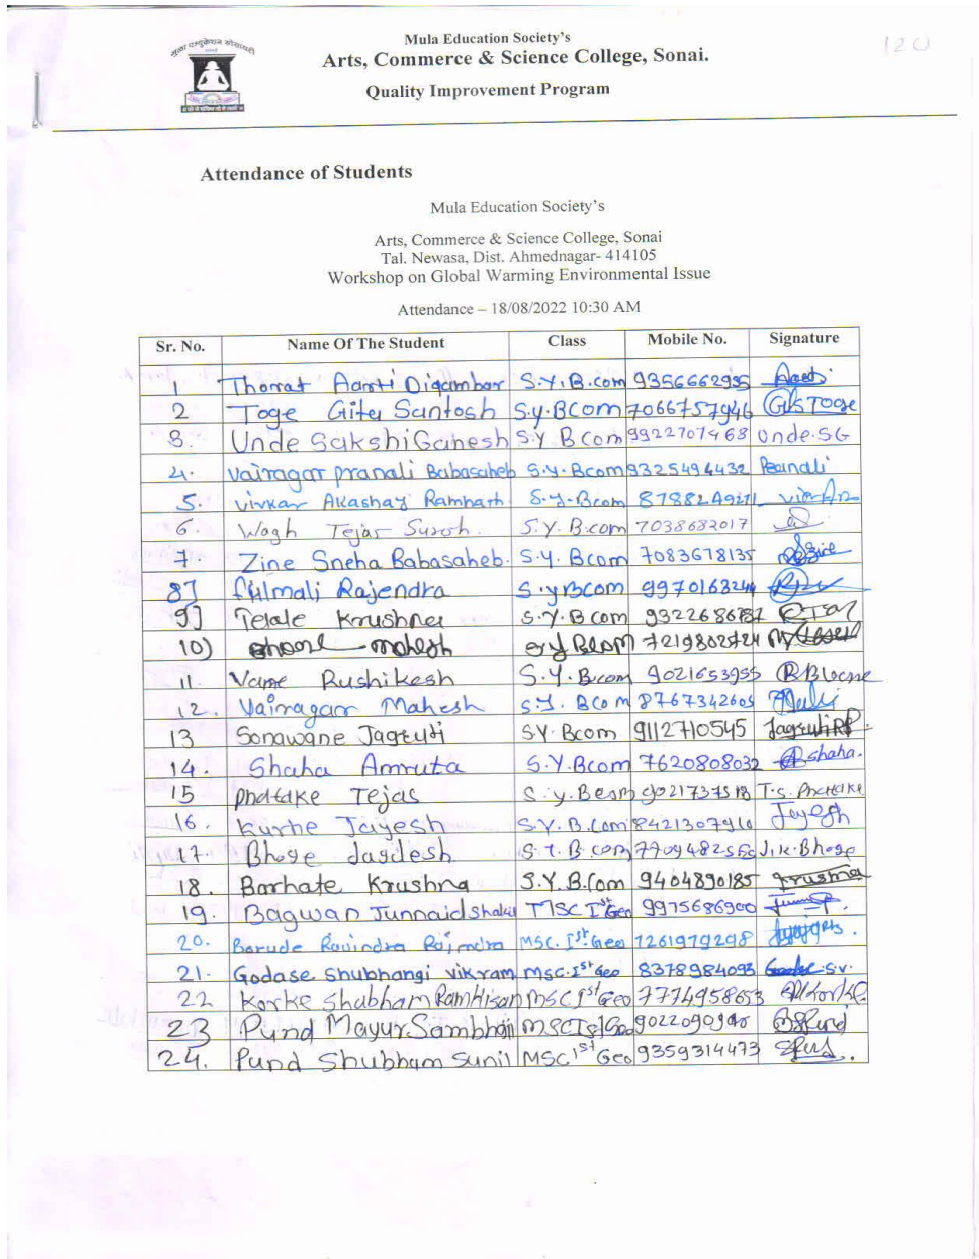 120
Mula Education Society's
Arts, Commerce & Science College, Sonai.
Quality Improvement Program
Attendance of Students
Mula Education Society's
Arts, Commerce & Science College, Sonai
Tal. Newasa, Dist. Ahmednagar- 414105
Workshop on Global Warming Environmental Issue
Attendance – 18/08/2022 10:30 AM
Sr. No. Name Of The Student Class Mobile No. Signature
1 Thorat Aarti Digambar S.Y.B.com 9356662995
2 Toge Gita Santosh S.y.BCom 7066757946 GSToge
3. Unde Sakshi Ganesh S.Y B Com 9922707468 Unde.SG
4. Vairagar pranali Babasaheb S.Y.Bcom 9325494432 Pranali
5. Vivkar Akashay Ramnath S.Y.Bcom
6. Wagh Tejas Suresh. S.Y.B.com 7038682017
7. Zine Sneha Babasaheb. S.Y.Bcom 7083678135
8] fulmali Rajendra S.yBCom 9970163244
9] Telale Krushna S.Y.B com
10) mahesh Bcom 7219802724
11 Vame Rushikesh S.Y.Bcom 9021653955
12. Vairagar Mahesh S.Y. BCom 8767342605
13 Sonawane Jagruti SY.Bcom 9112710545 JagrutiRP.
14. Shaha Amruta S.Y.Bcom 7620808032 Ashaha.
15 Phatake Tejas S.y.Bcom T.S.Phatake
16. Kurhe Jayesh S.Y.B.Com 8421307910 Jayesh
17. Bhoge Jagdesh S.Y.B com J.K.Bhoge
18. Barhate Krushna S.Y.B.Com 9404890185 Krushna
19. Bagwan Junnaid Shaku MSC Ist Geo 9975686900
20. Barude Ravindra Rajendra MSC. Ist Geo 7261979298
21. Godase Shubhangi vikram MSC.Ist Geo 8378984093
22 Korke Shubham Ramkisan MSC Ist Geo 7774958653
23 Pund Mayur Sambhaji MSC Ist Geo 9022090940
24. Pund Shubham Sunil MSC Ist Geo 9359314473